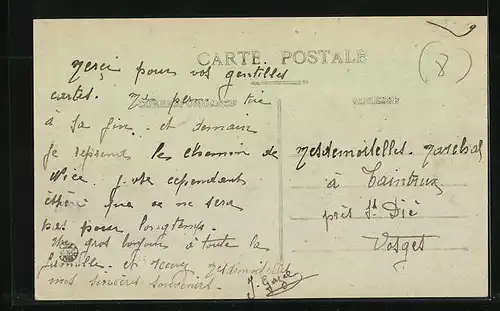 CARTE POSTALE
(8)
Merçi pour vos gentilles
cartes. Ma perm tire
à sa fin - et demain
je reprends le chemin de
Nice. J'ose cependant
espérer que ce ne sera
pas pour longtemps.
gros bonjour à toute la
famille. et recevez Mesdemoiselles
mes sincères souvenirs.
Mesdemoiselles Marchal
à Taintrux
près St Dié
Vosges